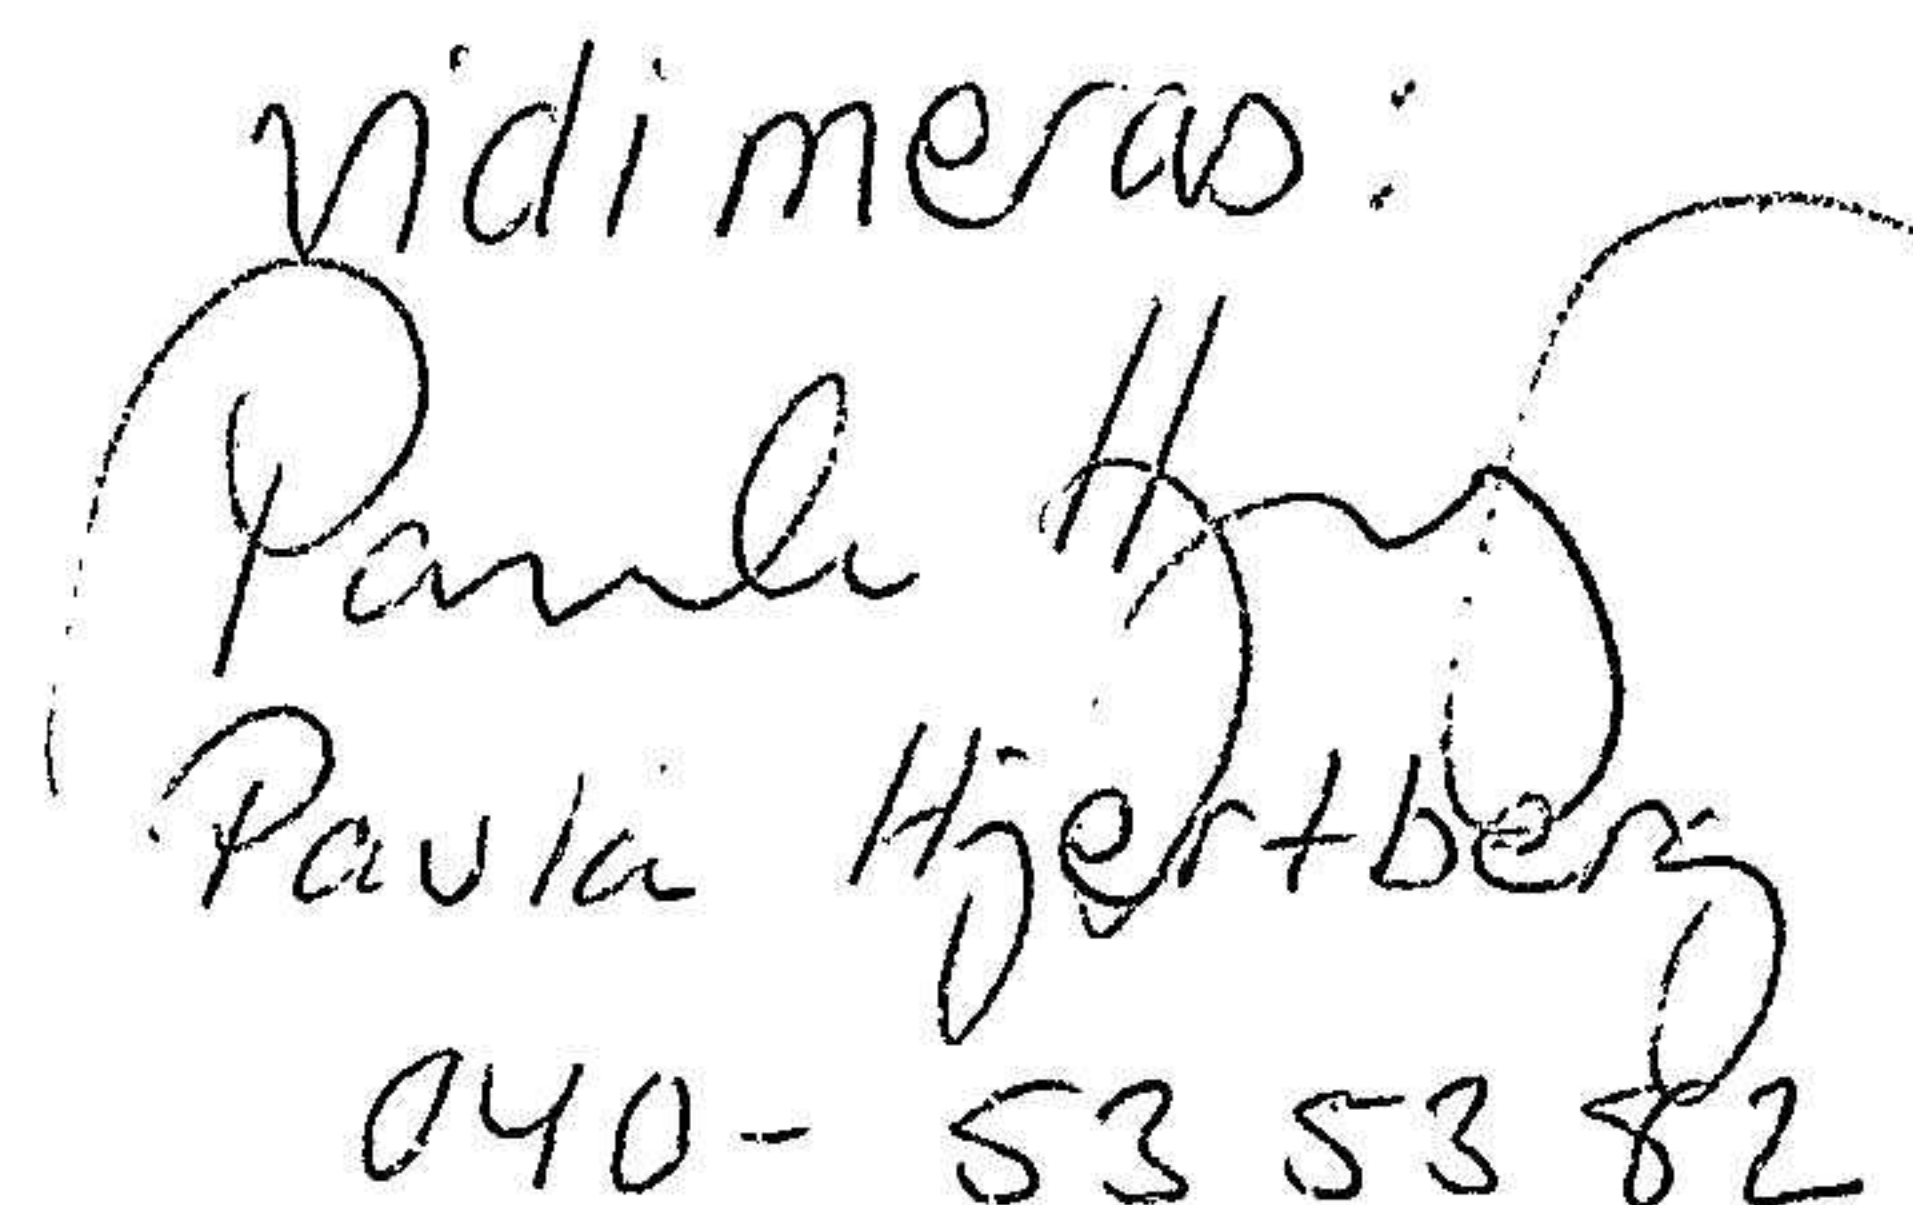 Vidimeras:
Paula H
Paula Hjertberg
040-53 53 82